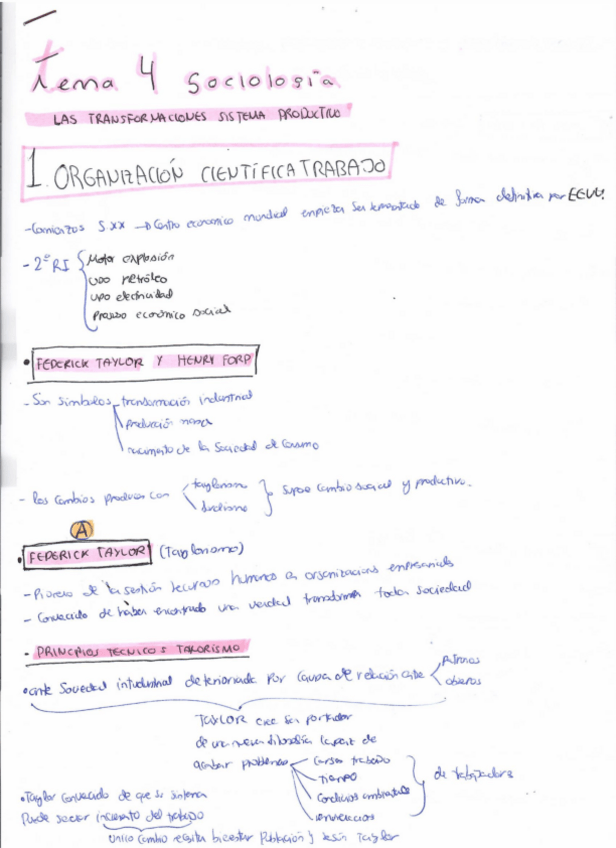 Tema 4 Sociología
LAS TRANSFORMACIONES SISTEMA PRODUCTIVO
1. ORGANIZACIÓN CIENTÍFICA TRABAJO
-Comienzos S XX → Centro económico mundial empieza ser de forma definitiva por EEUU.
- 2ª RI
Motor explosión
uso petróleo
uso electricidad
Proceso económico social
• FEDERICK TAYLOR Y HENRY FORD
- Son símbolos transformación industrial
producción masa
nacimiento de la Sociedad de Consumo
- Los cambios producen con
taylorismo
fordismo
supone cambio social y productivo.
A
• FEDERICK TAYLOR (Taylorismo)
- Pionero de la gestión recursos humanos en organizaciones empresariales
- Convencido de haber encontrado una verdad transformar toda sociedad
- PRINCIPIOS TECNICOS TAYLORISMO
• ante Sociedad industrial deteriorada por causa de relación entre
Patronos
obreros
TAYLOR cree ser portador
de una nueva filosofía capaz de
acabar problemas
cargas trabajo
tiempo
Condiciones ambientales
de trabajadores
• Taylor convencido de que su sistema
Puede sector incremento del trabajo
Único cambio bienestar Población según Taylor